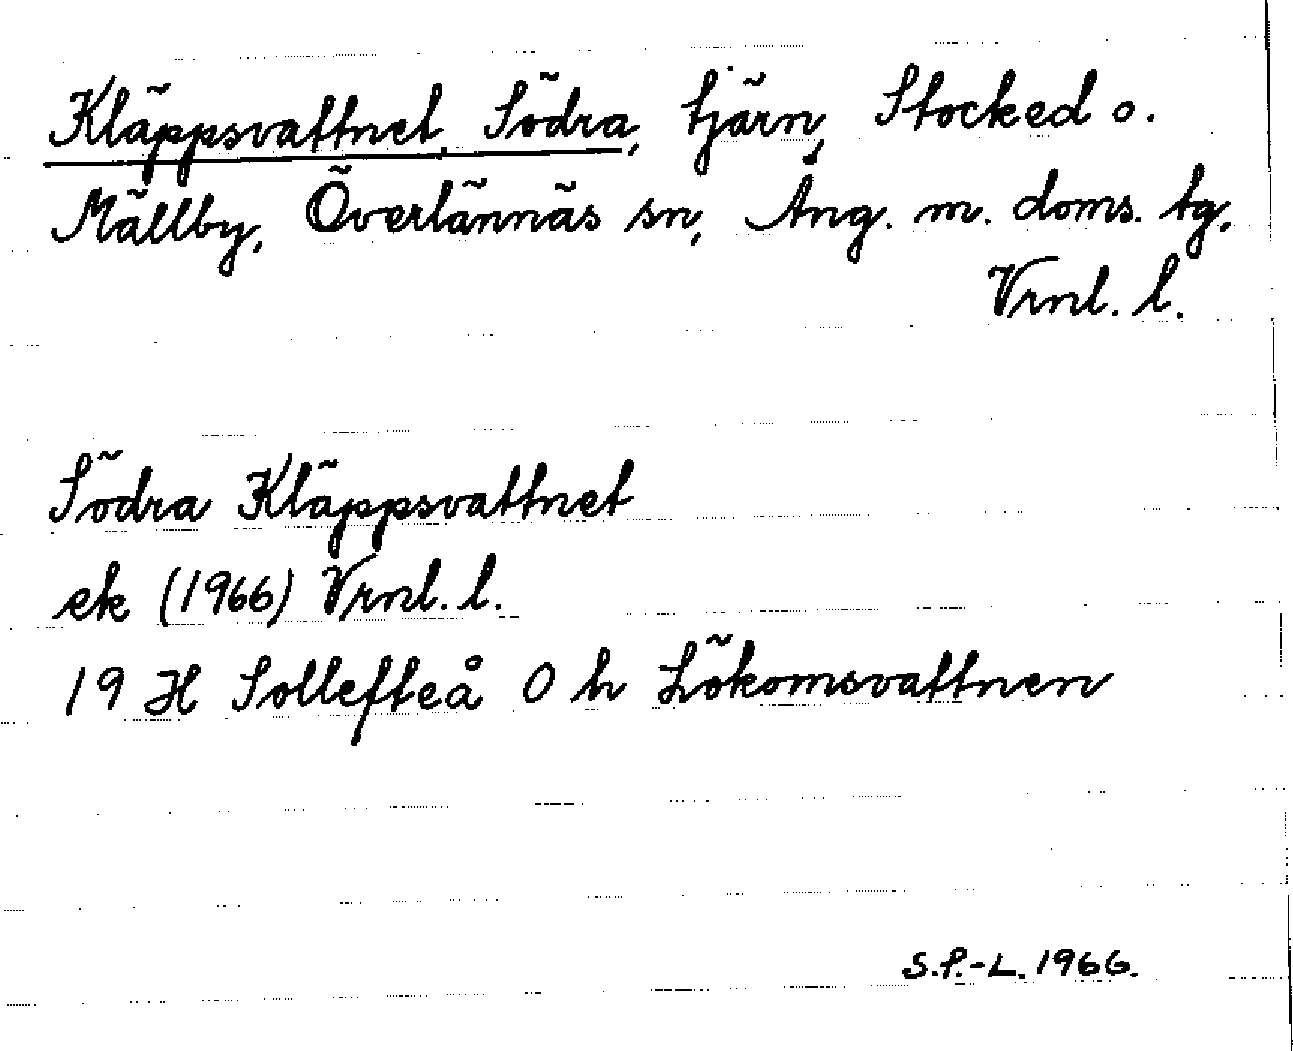 Kläppsvattnet, Södra, tjärn, Stocked o.
Mällby, Överlännäs sn, Ång. m. doms. tg,
Vrnl. l.
Södra Kläppsvattnet
ek (1966) Vrnl. l.
19 H Sollefteå 0 h Lökomsvattnen
S.P.-L. 1966.